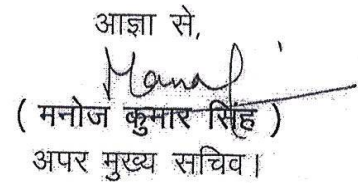 आज्ञा से,
( मनोज कुमार सिंह )
अपर मुख्य सचिव।